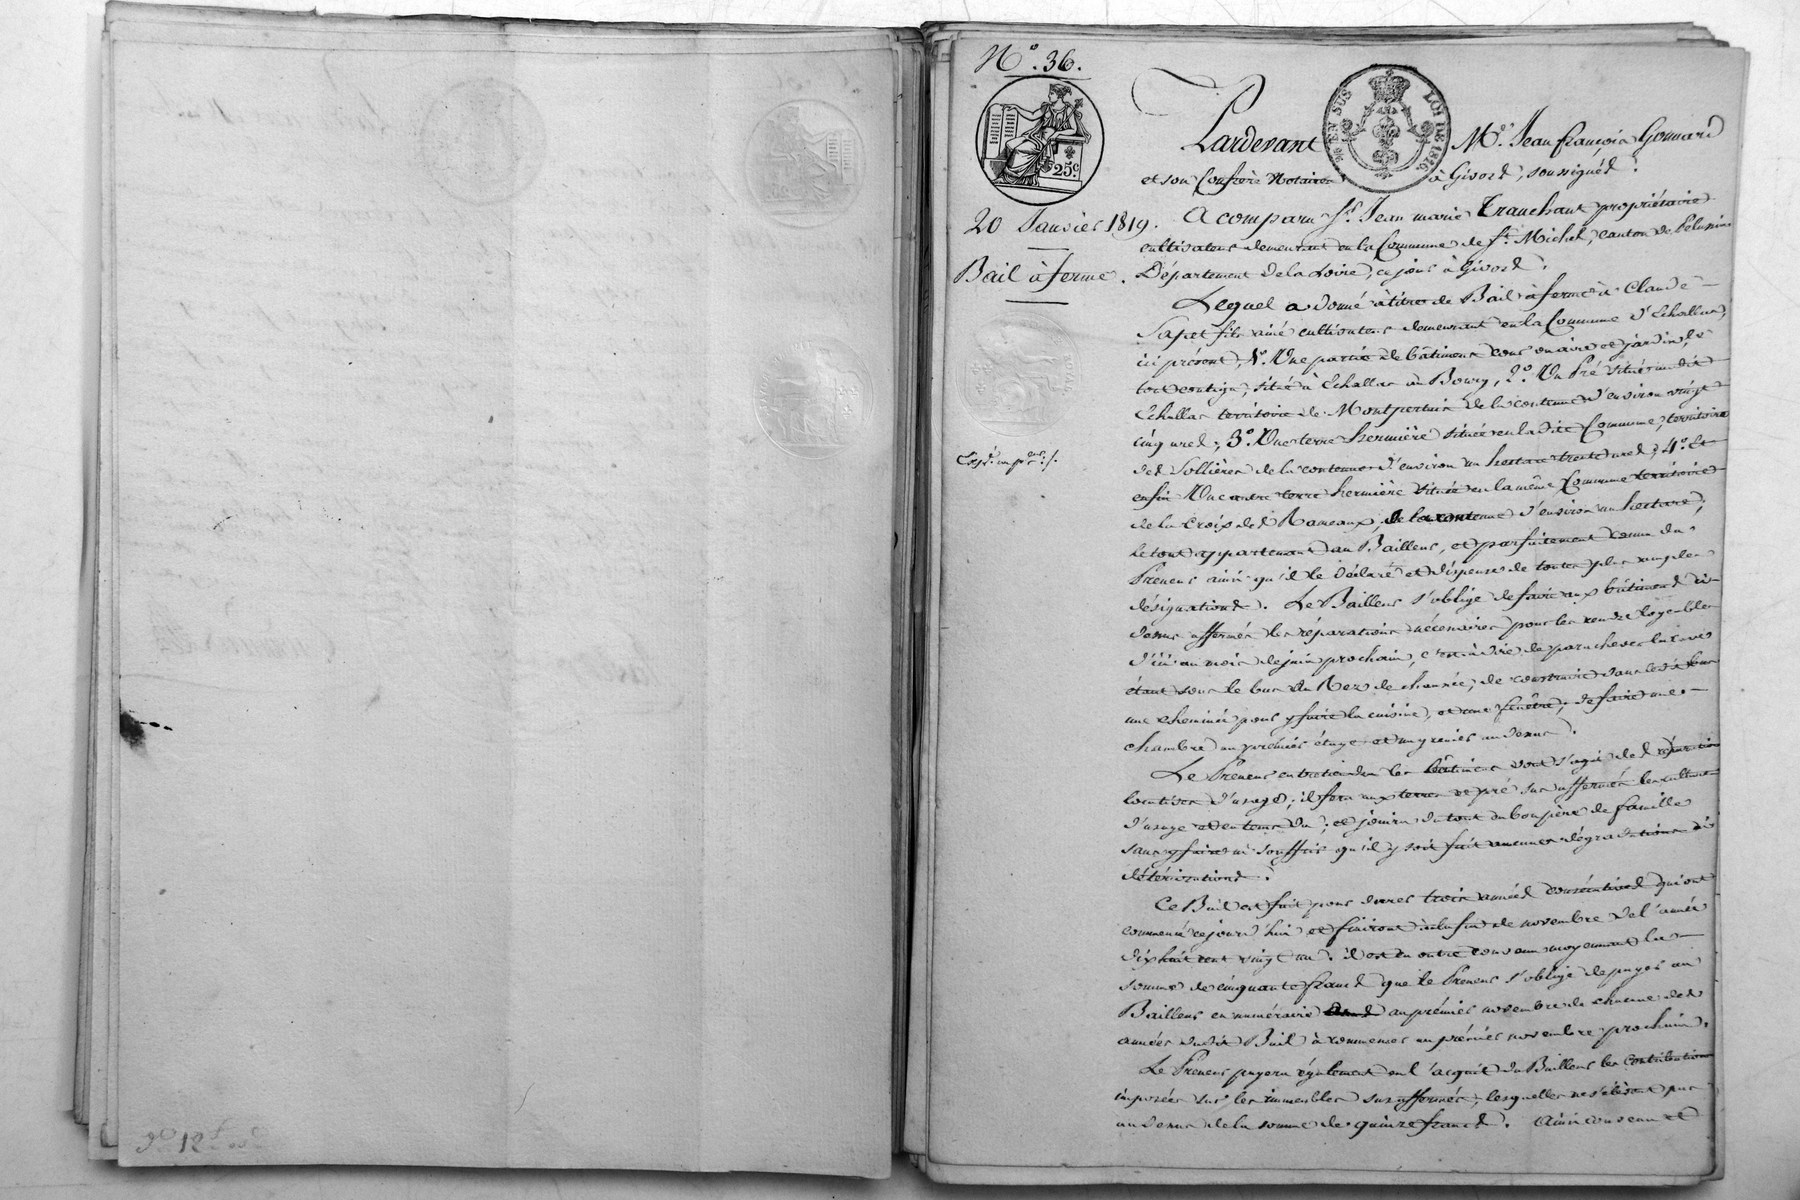 N.° 36.
25c
EN SUS LOI DE 1816
Pardevant M.e Jean françois Gonnard
et son Confrère Notaires à Givors, soussignés.
20 Janvier 1819.
Bail à ferme.
A comparu S.r Jean marie Tranchant propriétaire
cultivateur demeurant en la Commune de S.t Michel, canton de Pelussin
Département de la Loire, ce jour à Givors.
Lequel a donné à titre de Bail à ferme à Claude
fils ainé cultivateur demeurant en la Commune d'Echallas,
ici présent, 1.° Une partie de bâtiment cour en aire et jardin, le
tout contigu, situé à Echallas au Bourg, 2.° Un Pré situé au dit
Echallas territoire de Montpertuis de la contenue d'environ vingt
cinq ares; 3.° Une terre hermière située en la dite Commune, territoire
des Sollières de la contenue d'environ un hectare trente ares; 4.° Et
enfin Une autre terre hermière située en la même Commune territoire
de la Croix des Rameaux, de la contenue d'environ un hectare;
Le tout appartenant au Bailleur, et parfaitement connu du
Preneur ainsi qu'il le déclare et dispense de toutes plus amples
désignations. Le Bailleur s'oblige de faire aux bâtiments ci-
dessus affermés les réparations nécessaires pour les rendre logeables
d'ici au mois de juin prochain, c'est à dire de parachever la cave
étant sous le bas du Rez de chaussée; de construire dans le dit bas
une cheminée pour y faire la cuisine, et une fenêtre; de faire une
chambre au premier étage et un grenier au dessus.
Le Preneur entretiendra les bâtiments dont s'agit des réparations
locatives d'usage; il fera aux terres et pré sus affermés les cultures
d'usage et en tems du; et jouira du tout en bon père de famille
sans y faire ni souffrir qu'il y soit fait aucunes dégradations ni
détériorations.
Ce Bail est fait pour trois années consécutives qui ont
commencé ce jourd'hui et finiront à la fin de novembre de l'année
dix huit cent vingt un. il est en outre convenu moyennant la
somme de cinquante francs que le Preneur s'oblige de payer au
Bailleur en numéraire au premier novembre de chacune des
années dudit Bail à commencer au premier novembre prochain.
Le Preneur payera également en l'acquit du Bailleur les contributions
imposées sur les immeubles sus affermés, lesquelles ne s'élèvent pas
au dessus de la somme de quinze francs. Ainsi convenu et